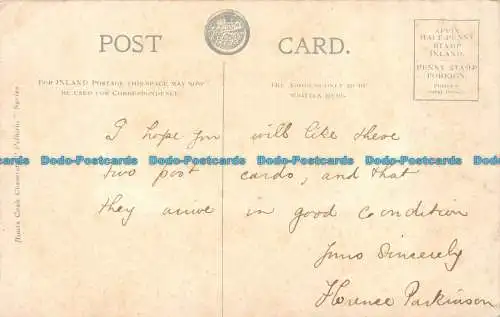 POST CARD.
FOR INLAND POSTAGE THIS SPACE MAY NOW
BE USED FOR CORRESPONDENCE.
THE ADDRESS ONLY TO BE
WRITTEN HERE.
AFFIX
HALF-PENNY
STAMP
INLAND.
PENNY STAMP
FOREIGN.
Boots Cash Chemists "Pelham" Series
I hope you will like these
two post cards, and that
they arrive in good condition
Yours Sincerely
Florence Parkinson
Dodo-Postcards Dodo-Postcards Dodo-Postcards Dodo-Postcards
Dodo-Postcards Dodo-Postcards Dodo-Postcards Dodo-Postcards